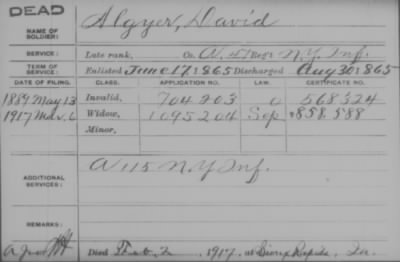 DEAD
NAME OF SOLDIER: Algyer, David
SERVICE: Late rank, Co. A, 47 Reg't N.Y. Inf.
TERM OF SERVICE: Enlisted June 17, 1865 Discharged Aug 30, 1865
DATE OF FILING. CLASS. APPLICATION NO. LAW. CERTIFICATE NO.
1889 May 13 Invalid, 704203 568324
1917 Mar. 6 Widow, 1095204 Sep 858.588
Minor,
ADDITIONAL SERVICES: A 115 N.Y. Inf.
REMARKS:
Died Feb. 2, 1917, at Sioux Rapids, Ia.